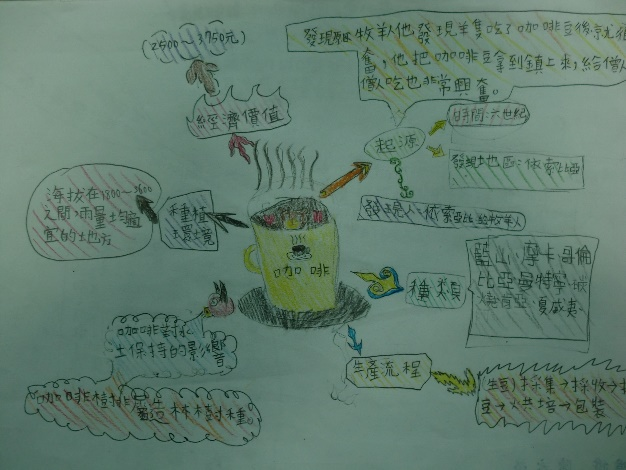 (2500~3750元)
經濟價值
發現跟牧羊人他發現羊隻吃了咖啡豆後就很
奮，他把咖啡豆拿到鎮上來，給僧
僧人吃也非常興奮。
起源
時間：六世紀
發現地區：依索比亞
發現人：依索亞比的牧羊人
海拔在1800~3600
之間，雨量均適
宜的地方
種植
環境
咖啡
種類
藍山、摩卡、哥倫
比亞、曼特寧、
肯亞、夏威夷
咖啡對水
土保持的影響
咖啡樹排
造林樹種。
生產流程
(生豆)採集→採收→
豆→烘培→包裝